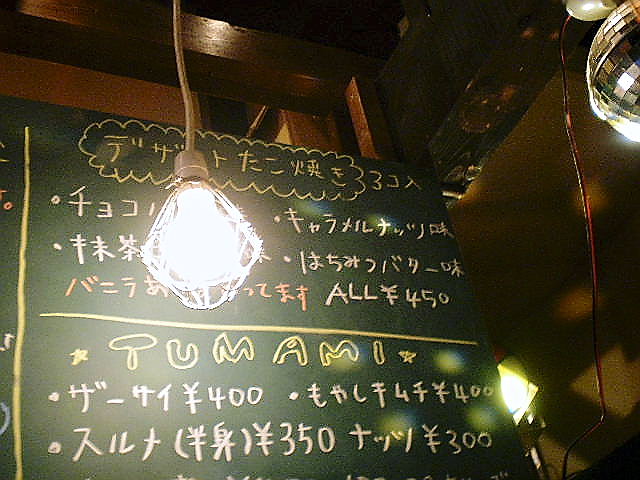 デザートたこ焼き 3コ入
・チョコ ・キャラメルナッツ味
・抹茶 味 ・はちみつバター味
バニラあ ってます ALL¥450
TUMAMI
・ザーサイ¥400 ・もやしキムチ¥400
・スルメ(半身)¥350 ナッツ¥300